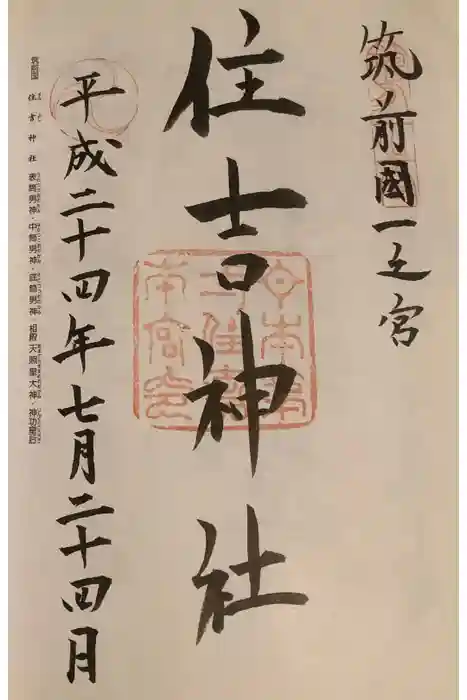 筑前國一之宮
住吉神社
平成二十四年七月二十四日
筑前國 住吉神社 表筒男神・中筒男神・底筒男神・相殿 天照皇大神・神功皇后